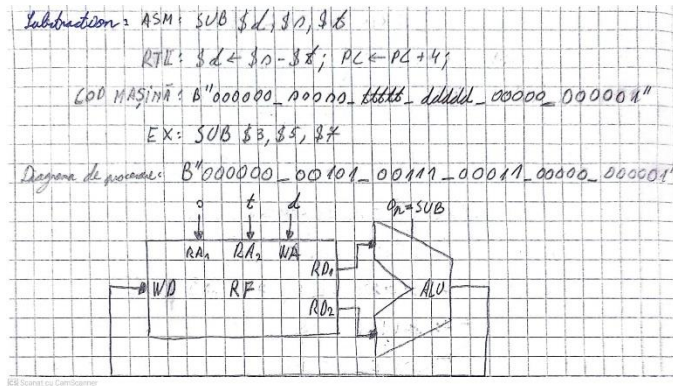 Substraction: ASM: SUB $d, $s, $t
RTL: $d ← $s - $t; PC ← PC + 4;
COD MAȘINĂ: B"000000_sssss_ttttt_ddddd_00000_000001"
EX: SUB $3, $5, $7
Diagrama de procesare: B"000000_00101_00111_00011_00000_000001"
s t d Op=SUB
RA1 RA2 WA
RD1
WD RF ALU
RD2
CS Scanat cu CamScanner